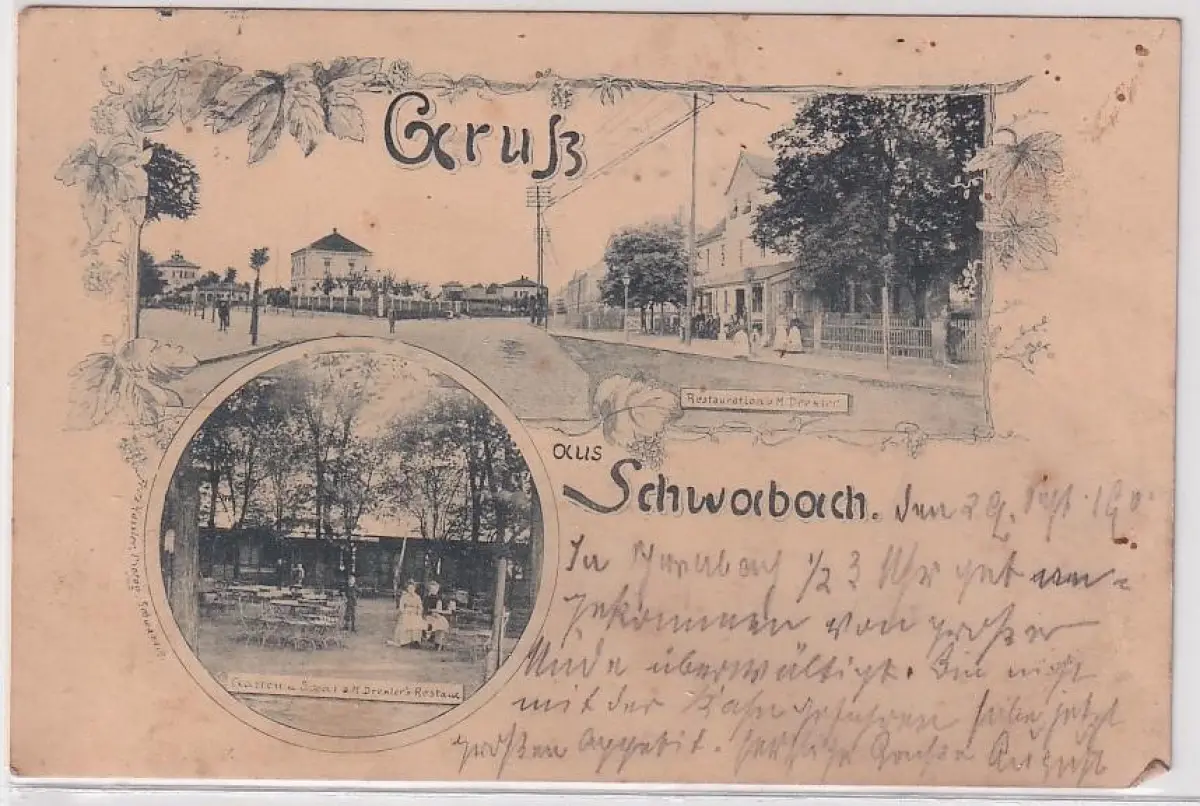 Gruß
Restauration v. M. Drexler.
aus
Schwabach. den 29. Sept. 190
In Schwabach 1/2 3 Uhr gut an-
gekommen von großer
Müde überwältigt. Bin nicht
mit der Bahn gefahren habe jetzt
großen Appetit. Herzliche Grüße August
Garten u. Saal v. M. Drexler's Restaur.
Schwabach